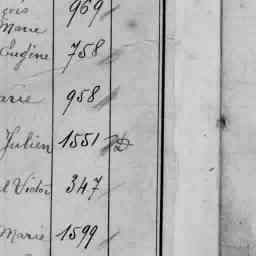 çois 969
Marie
Eugène 758
arie 958
Julien 1551 D
l Victor 347
Marie 1599